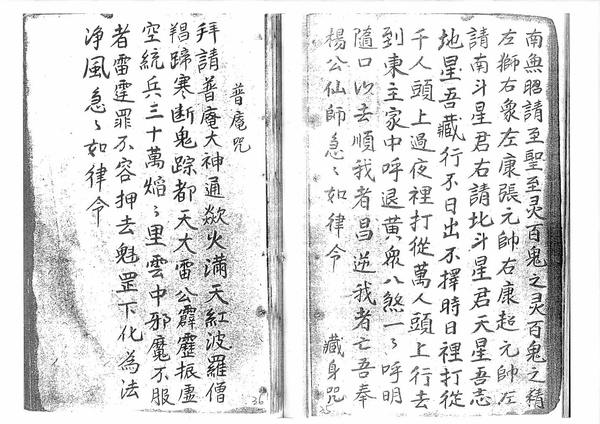 南無昭請至聖至灵百鬼之灵百鬼之精
左獅右衆左康張元帥右康超元帥左
請南斗星君右請北斗星君天星吾志
地星吾藏行不日出不擇時日裡打從
千人頭上過夜裡打從萬人頭上行去
到東主家中呼退黄衆八煞一々呼明
隨口㕥去順我者昌逆我者亡吾奉
楊公仙師急々如律令
藏身咒
25
普庵咒
拜請普庵大神通欻火滿天紅波羅僧
羯蹄寒断鬼踪都天大雷公霹靂振虛
空統兵三十萬焰々里雲中邪魔不服
者雷霆罪不容押去魁罡下化為法
净風急々如律令
36